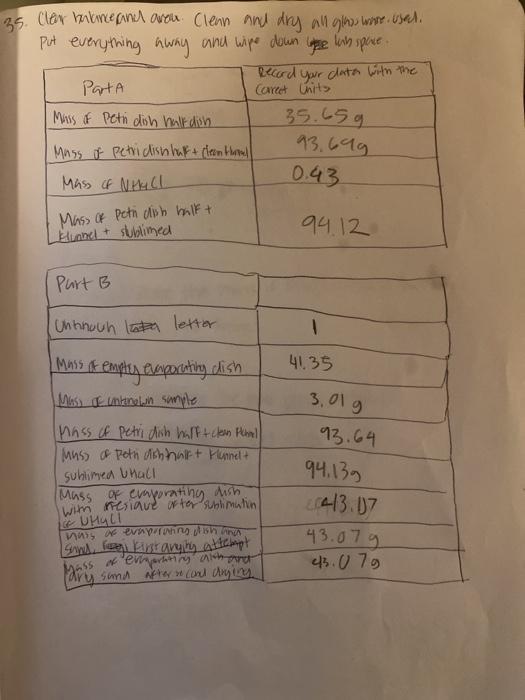 35. Clear balance and area. Clean and dry all glassware used.
Put everything away and wipe down lab space.
Part A
Record your data with the
correct units
Mass of Petri dish half dish
35.65 g
Mass of petri dish half + clean funnel
93.69g
Mass of NH4Cl
0.43
Mass of Petri dish half +
funnel + sublimed
94.12
Part B
Unknown letter
1
Mass of empty evaporating dish
41.35
Mass of unknown sample
3.01 g
Mass of Petri dish half + clean funnel
93.64
Mass of Petri dish half + funnel +
sublimed NH4Cl
94.13g
Mass of evaporating dish
with residue after sublimation
of NH4Cl
43.17
mass of evaporating dish and
sand, first drying attempt
43.07 g
Mass of evaporating dish and
dry sand after second drying
43.07g